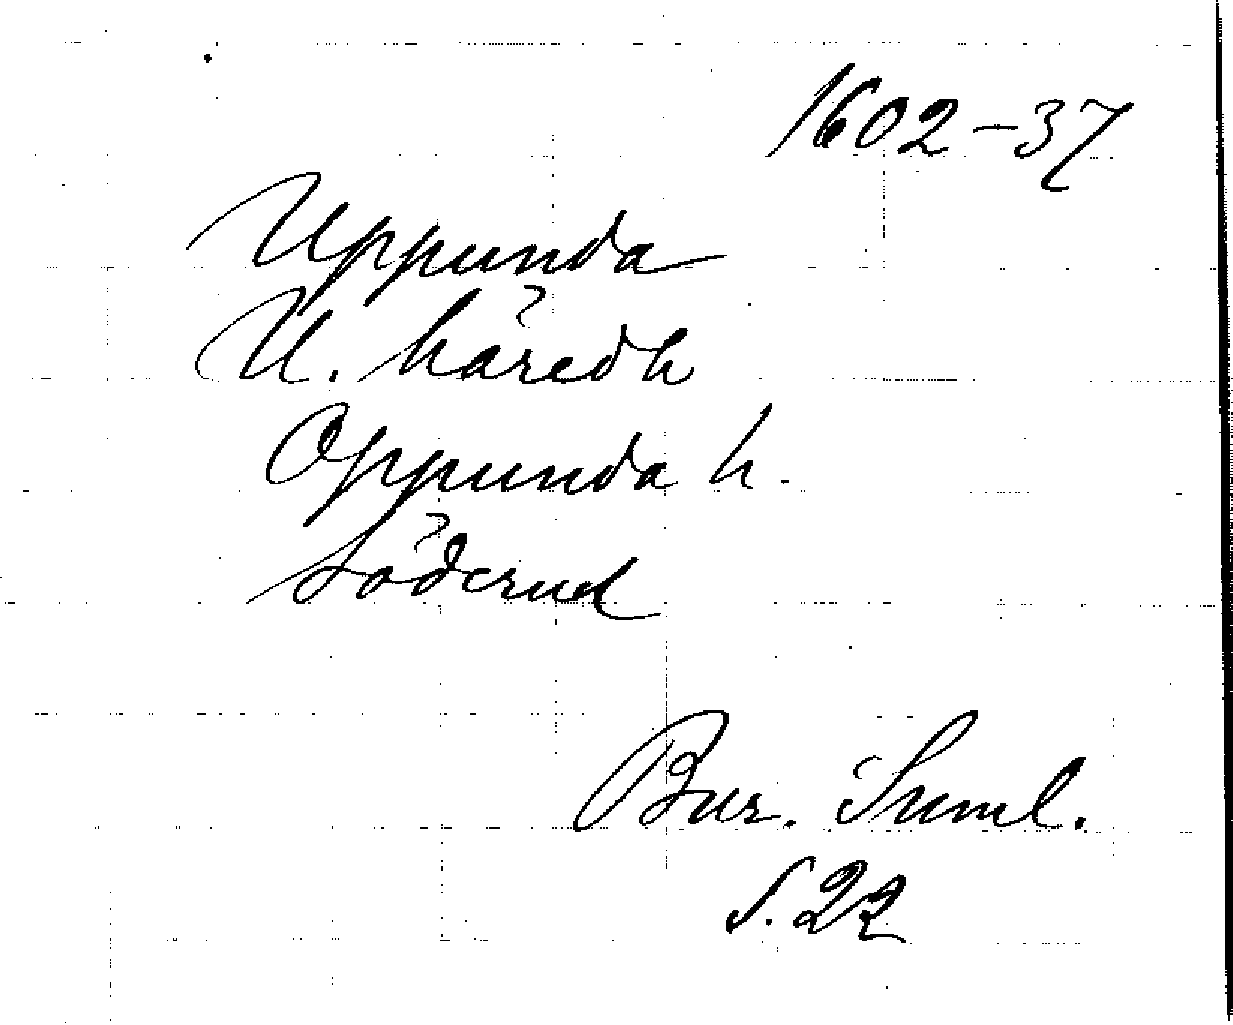 1602-37
Uppunda
U. häredh
Oppunda h.
Söderml
Bur. Suml.
s. 22